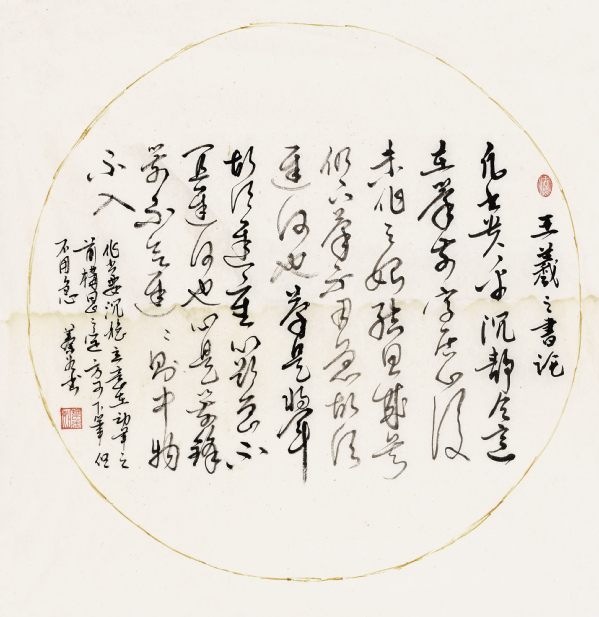 王羲之書論
凡書貴乎沉靜令意
在筆前字居心後
未作之始結思成矣
仍下筆不用急故須
遲何也筆是將軍
故須遲重心欲急不
宜遲何也心是箭鋒
箭不欲遲〻則中物
不入
作書要沉穩立意在動筆之
前構思之後方可下筆但
不用急